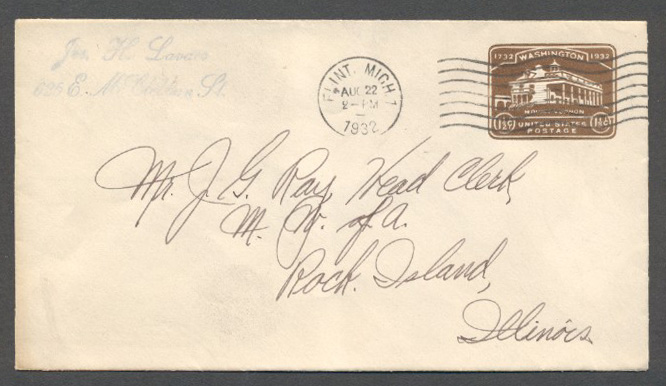 Jos. H.
626 E. St.
FLINT, MICH. 1
AUG 22
2-PM
1932
1732 WASHINGTON 1932
MOUNT VERNON
1½¢ 1½¢
UNITED STATES
POSTAGE
Mr. J. G. Ray, Head Clerk,
M. W. of A.
Rock Island,
Illinois.